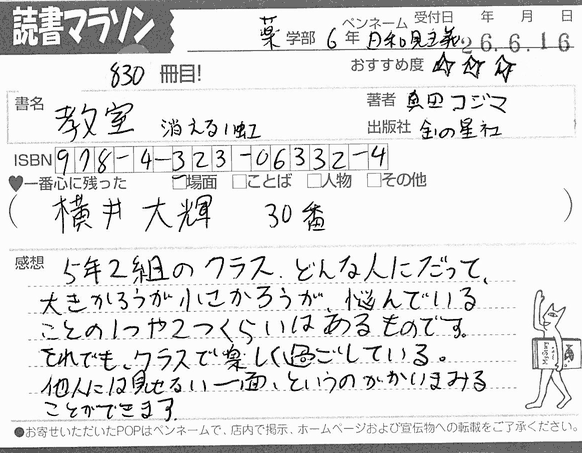 読書マラソン
薬 学部 6年 ペンネーム 日和見主義 受付日 年 月 日
26.6.16
830 冊目! おすすめ度 ☆☆☆
書名 教室 消える虹
著者 眞田コジマ
出版社 金の星社
ISBN 978-4-323-06332-4
♥一番心に残った □場面 □ことば □人物 □その他
( 横井 大輝 30番 )
感想 5年2組のクラス.どんな人にだって、
大きかろうが小さかろうが、悩んでいる
ことの1つや2つくらいはあるものです。
それでも、クラスで楽しく過ごしている。
他人には見せない一面、というのがかいまみる
ことができます.
●お寄せいただいたPOPはペンネームで、店内で掲示、ホームページおよび宣伝物への転載をご了承ください。